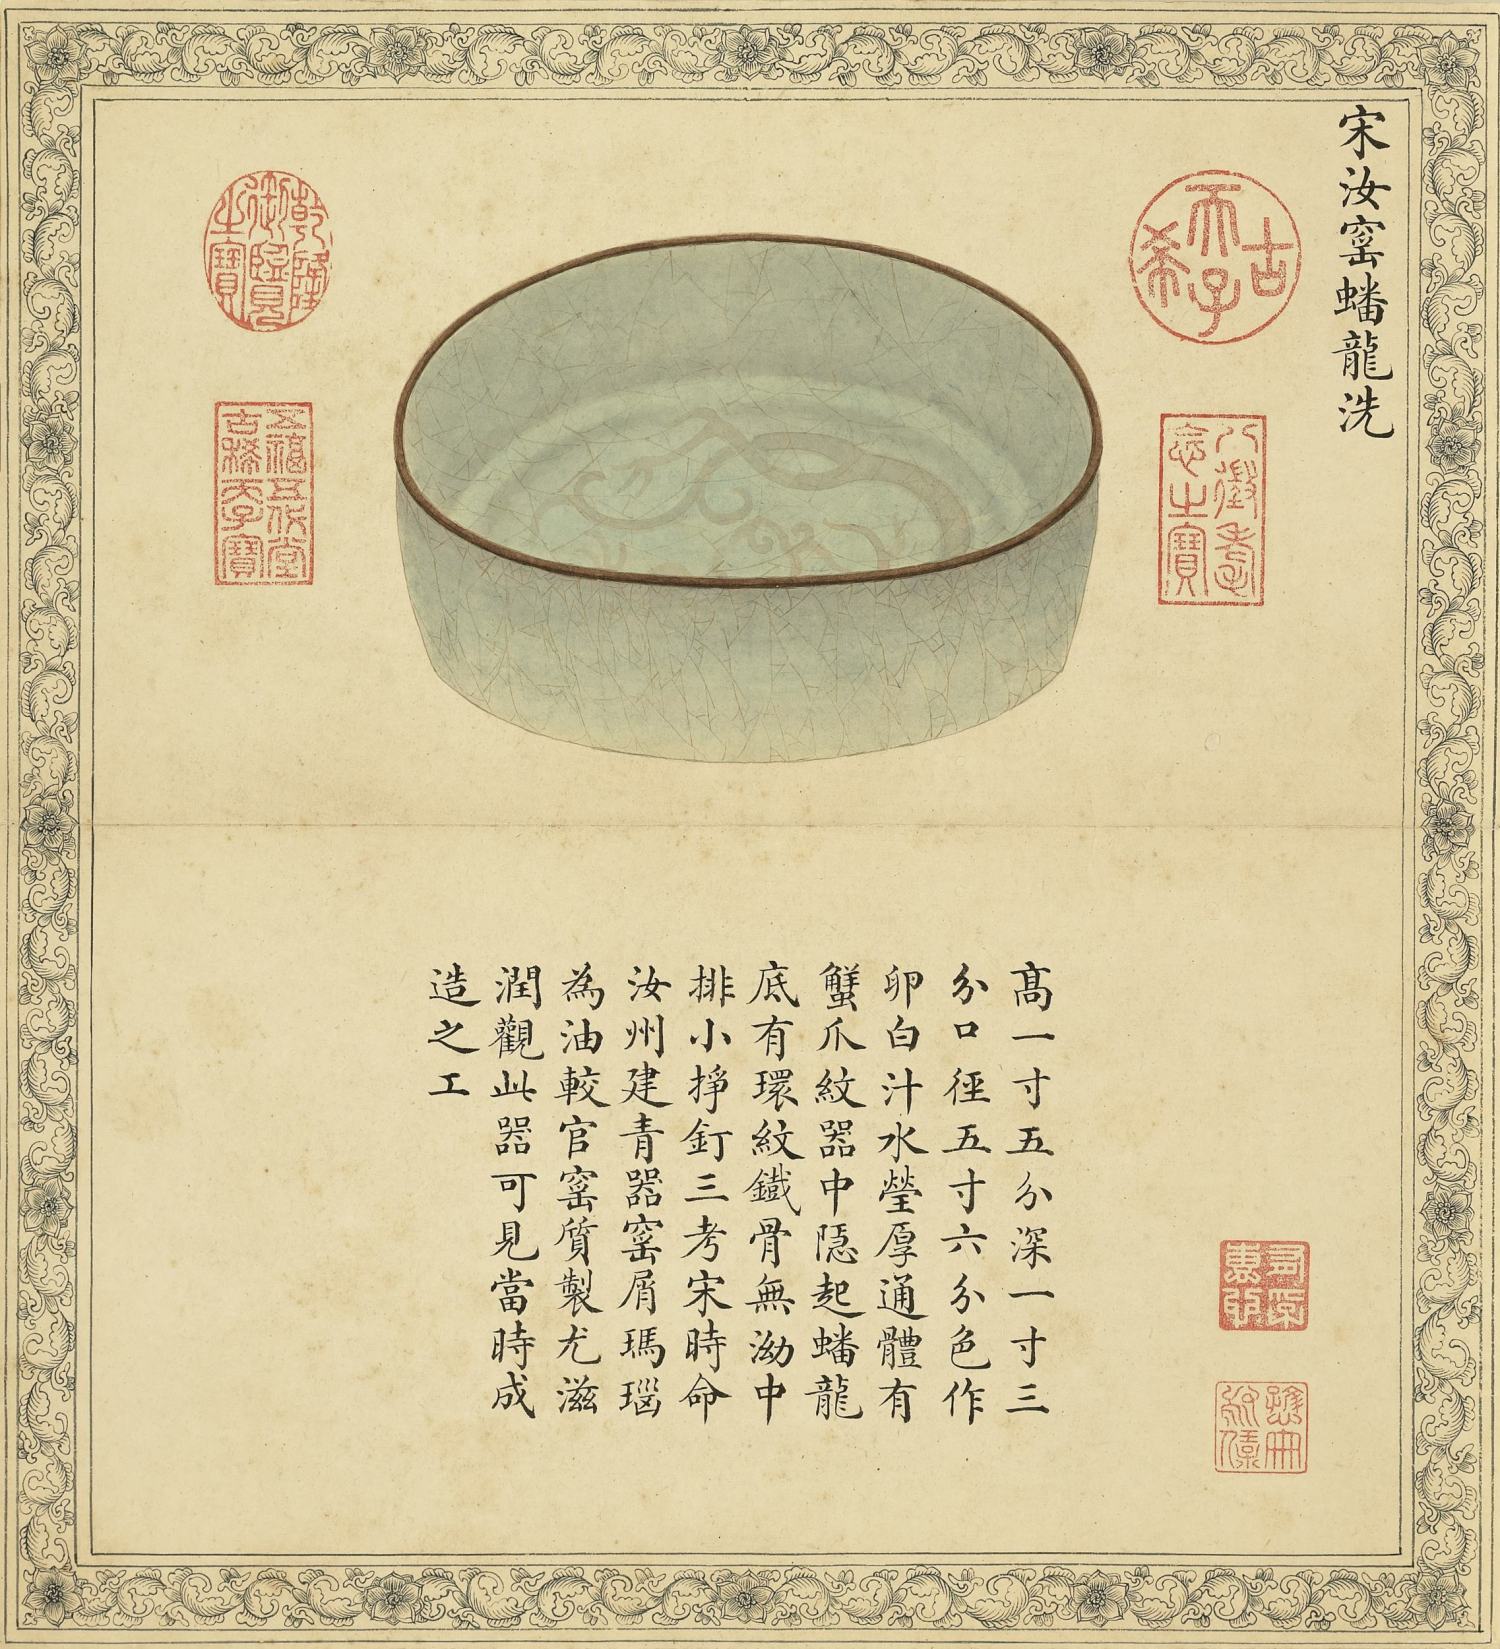 宋汝窰蟠龍洗
古希天子
八徵耄念之寶
乾隆御覽之寶
五福五代堂古稀天子寶
髙一寸五分深一寸三
分口徑五寸六分色作
卵白汁水瑩厚通體有
蟹爪紋器中隱起蟠龍
底有環紋鐵骨無泑中
排小掙釘三考宋時命
汝州建青器窰屑瑪瑙
為油較官窰質製尤滋
潤觀此器可見當時成
造之工